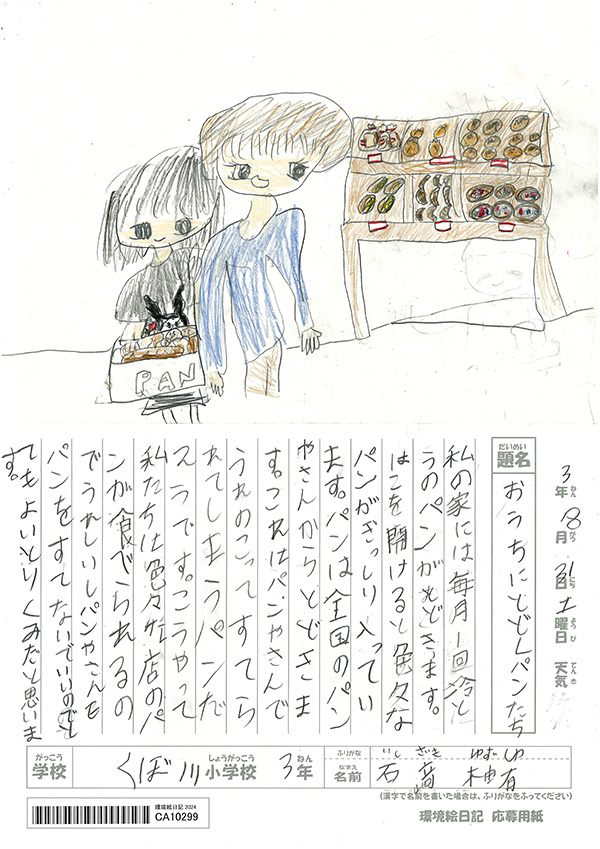 PAN
3年ねん 8月がつ 31日にち 土曜日ようび 天気てんき
だいめい
題名 おうちにとどくパンたち
私の家には毎月1回冷と
うのパンがとどきます。
はこを開けると色々な
パンがぎっしり入ってい
ます。パンは全国のパン
やさんからとどきま
す。これはパンやさんで
うれのこってすてら
れてしまうパンだ
そうです。こうやって
私たちは色々な店のパ
ンが食べられるの
でうれしいしパンやさんも
パンをすてないでいいのでと
てもよいとりくみだと思いま
す。
がっこう しょうがっこう ねん
学校 くぼ川小学校 3年
ふりがな いし ざき ゆず ゆ
なまえ
名前 石﨑 柚有
(漢字で名前を書いた場合は、ふりがなをふってください)
環境絵日記 2024
CA10299
環境絵日記 応募用紙